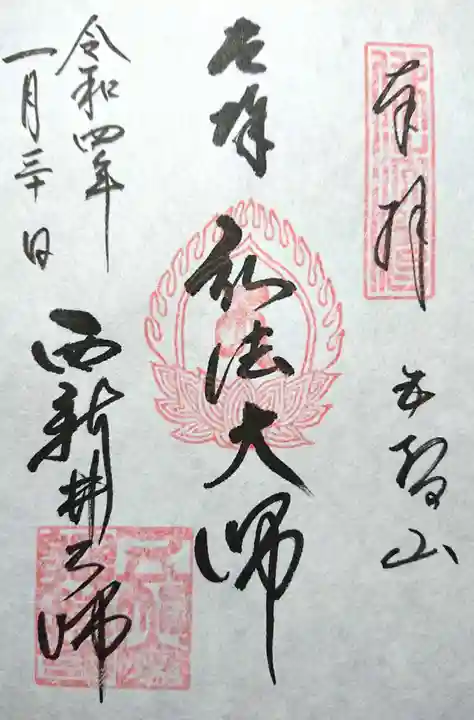 奉拝
五智山
弘法大師
西新井大師
令和四年
一月三十日